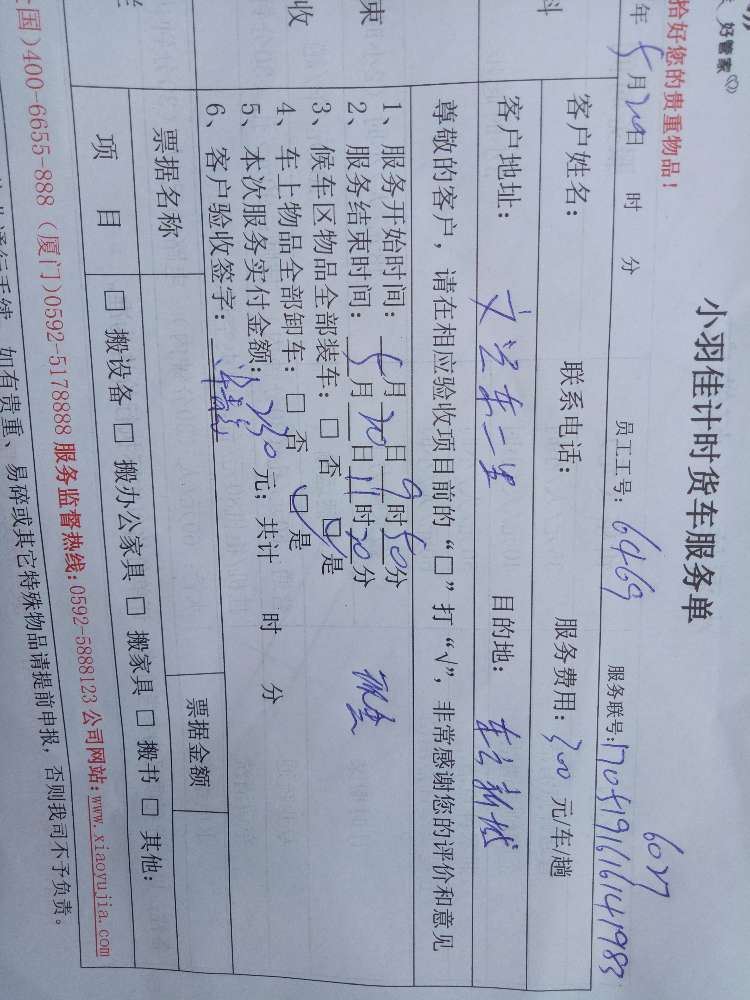 好管家
拾好您的贵重物品！
小羽佳计时货车服务单
年5月20日 时 分 员工工号：6469 服务联号：1705191616141983
6027
客户姓名： 联系电话： 服务费用：300元/车/趟
客户地址： 东二里 目的地： 新城
尊敬的客户，请在相应验收项目前的“□”打“√”，非常感谢您的评价和意见
1、服务开始时间：5月20日9时50分
2、服务结束时间：5月20日11时20分
3、候车区物品全部装车：□否 ☑是
4、车上物品全部卸车：□否 ☑是
5、本次服务实付金额：元；共计 时 分
6、客户验收签字：
束
收
票据名称 票据金额
项目 □搬设备 □搬办公家具 □搬家具 □搬书 □其他：
国)400-6655-888 (厦门)0592-5178888 服务监督热线:0592-5888123 公司网站:www.xiaoyujia.com
通行手续，如有贵重、易碎或其它特殊物品请提前申报，否则我司不予负责。